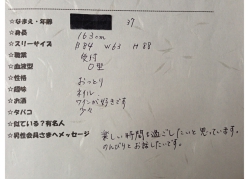 ☆なまえ・年齢 37
☆身長 163cm
☆スリーサイズ B84 W63 H88
☆職業 受付
☆血液型 O型
☆性格 おっとり
☆趣味 ネイル
☆お酒 ワインが好きです
☆タバコ 少々
☆似ている?有名人
☆男性会員さまへメッセージ 楽しい時間を過ごしたいと思っています。
のんびりとお話したいです。